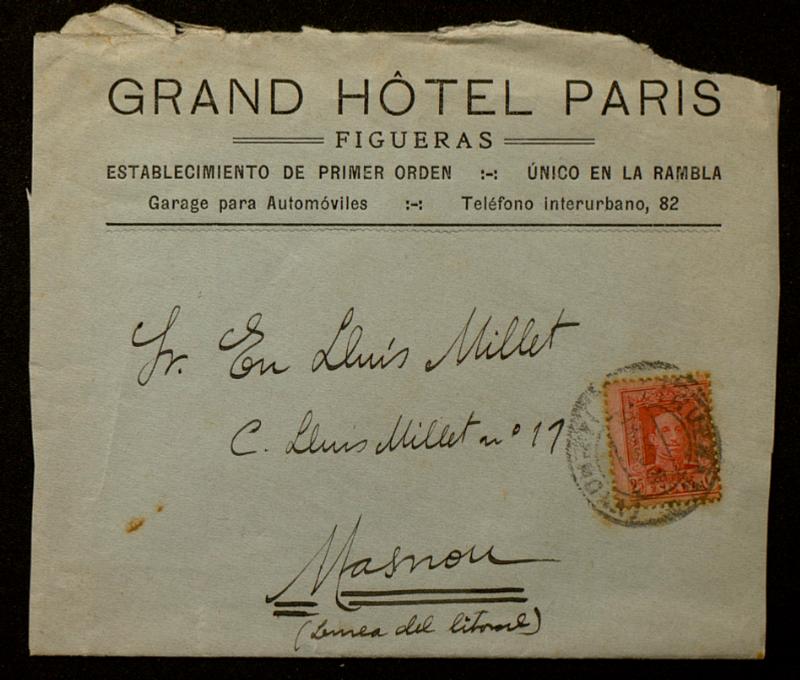 GRAND HÔTEL PARIS
FIGUERAS
ESTABLECIMIENTO DE PRIMER ORDEN :-: ÚNICO EN LA RAMBLA
Garage para Automóviles :-: Teléfono interurbano, 82
Sr. En Lluís Millet
C. Lluis Millet nº 11
Masnou
(Linea del litoral)
25